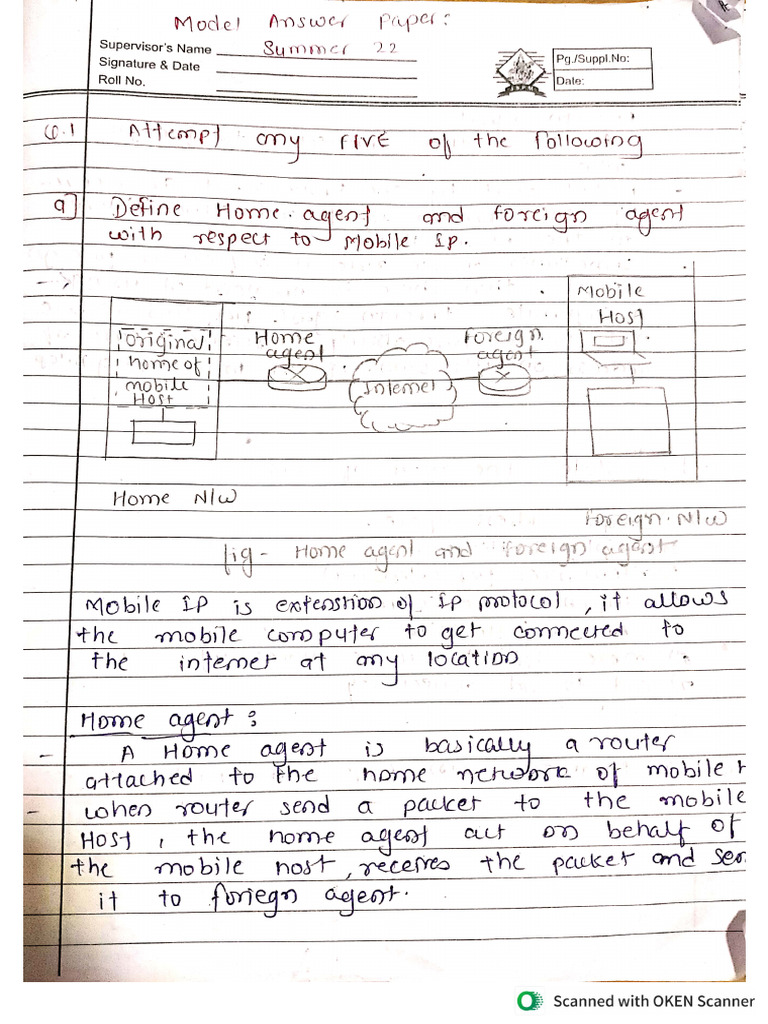 Model Answer Paper:
Supervisor's Name Summer 22
Signature & Date
Roll No.
Pg./Suppl.No:
Date:
Q.1 Attempt any FIVE of the following
a] Define Home agent and foreign agent
with respect to Mobile IP.
Mobile
Host
original
home of
mobile
Host
Home
agent
Internet
Foreign
agent
Home N/W
Foreign N/W
fig - Home agent and foreign agent
Mobile IP is extenstion of IP protocol, it allows
the mobile computer to get connected to
the internet at any location
Home agent:
- A Home agent is basically a router
attached to the home network of mobile
- when router send a packet to the mobile
Host, the home agent act on behalf of
the mobile host, receives the packet and sen
it to foriegn agent.
Scanned with OKEN Scanner